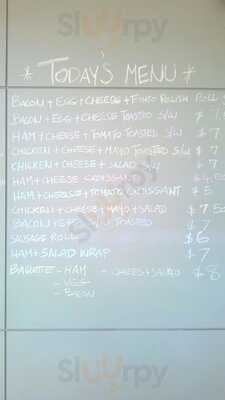 Sluurpy
* TODAY'S MENU *
BACON + EGG + CHEESE + TOMATO RELISH ROLL $
BACON + EGG + CHEESE TOASTED S/W $ 7
HAM + CHEESE + TOMATO TOASTED S/W $ 7
CHICKEN + CHEESE + MAYO TOASTED S/W $ 7
CHICKEN + CHEESE + SALAD S/W $ 7
HAM + CHEESE CROISSANT $ 4.50
HAM + CHEESE + TOMATO CROISSANT $ 5
CHICKEN + CHEESE + MAYO + SALAD $ 7.50
BACON + EGG TOASTED $ 7
SAUSAGE ROLL $6
HAM + SALAD WRAP $7
BAGUETTE - HAM - CHEESE + SALAD $ 8
- VEG
- BACON
Sluurpy